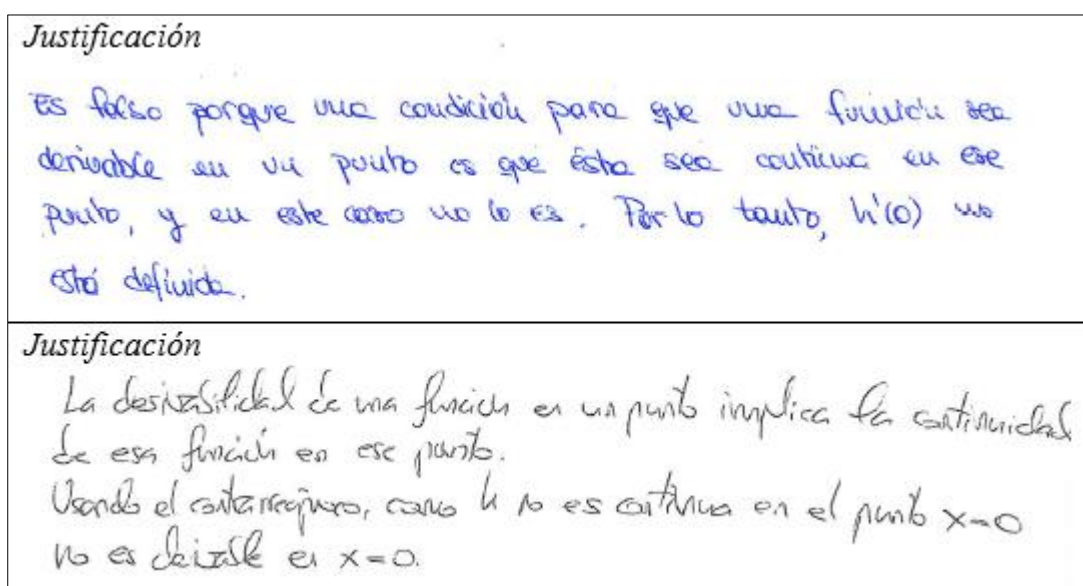 Justificación
Es falso porque una condición para que una función sea
derivable en un punto es que ésta sea continua en ese
punto, y en este caso no lo es. Por lo tanto, h'(0) no
está definida.
Justificación
La derivabilidad de una función en un punto implica la continuidad
de esa función en ese punto.
Usando el contrarrecíproco, como h no es continua en el punto x=0
no es derivable en x=0.